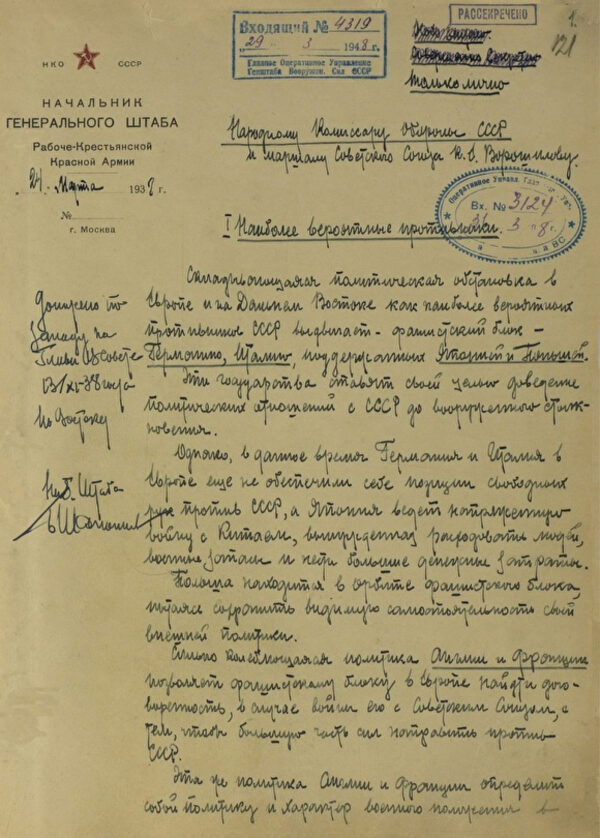 РАССЕКРЕЧЕНО
1.
121
Входящий № 4319
"29" 3 1948 г.
Главное Оперативное Управление
Генштаба Вооружен. Сил СССР
только лично
НКО СССР
НАЧАЛЬНИК
ГЕНЕРАЛЬНОГО ШТАБА
Рабоче-Крестьянской
Красной Армии
"24" Марта 1938 г.
№
г. Москва
Народному Комиссару Обороны СССР
и маршалу Советского Союза К.Е. Ворошилову.
Вх. № 3124
I Наиболее вероятные противники.
Складывающаяся политическая обстановка в
Европе и на Дальнем Востоке как наиболее вероятных
противников СССР выдвигает - фашистский блок -
Германию, Италию, поддержанных Японией и Польшей.
Эти государства ставят своей целью доведение
политических отношений с СССР до вооруженного столк-
новения.
Однако, в данное время Германия и Италия в
Европе еще не обеспечили себе позиции свободных
рук против СССР, а Япония ведет напряженную
войну с Китаем, вынужденная расходовать людей,
военные запасы и нести большие денежные затраты.
Польша находится в орбите фашистского блока,
пытаясь сохранить видимую самостоятельность своей
внешней политики.
Сильно колеблющаяся политика Англии и Франции
позволяет фашистскому блоку в Европе найти дого-
воренность, в случае войны его с Советским Союзом, с
тем, чтобы большую часть сил направить против
СССР.
Эта же политика Англии и Франции определит
собой политику и характер военного положения в
Доложено по
Западу на
Главн. В. Совете
по Востоку
Нач. Г. Штаба